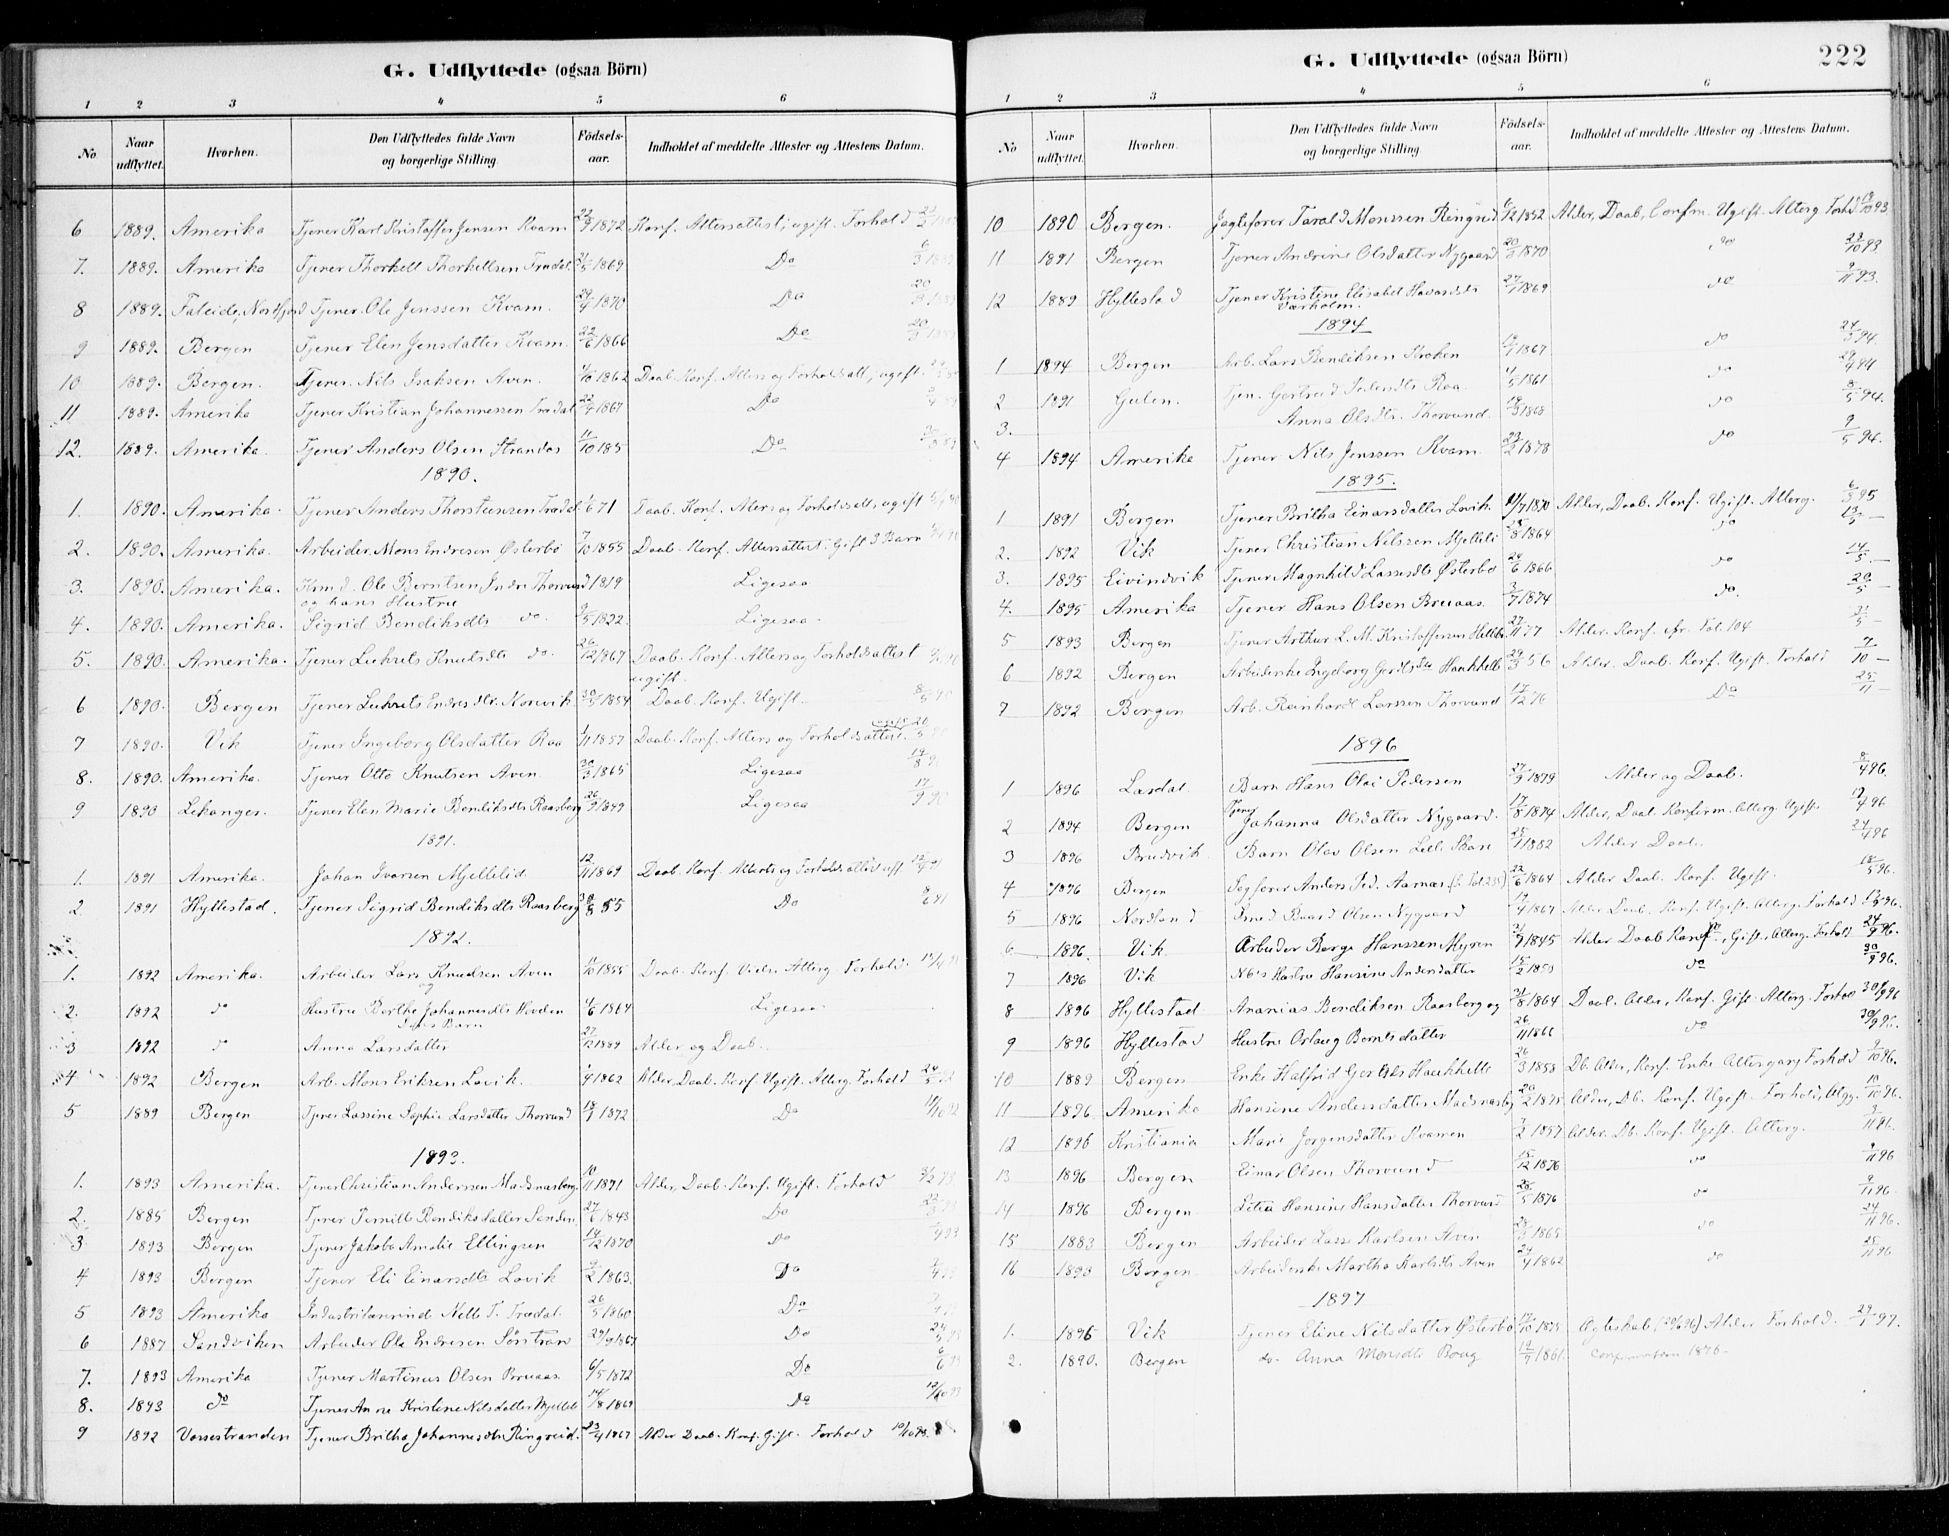 G. Udflyttede (ogsaa Börn)
1 2 3 4 5 6
No Naar udflyttet. Hvorhen. Den Udflyttedes fulde Navn og borgerlige Stilling. Födsels-aar. Indholdet af meddelte Attester og Attestens Datum.
6 1889. Amerika Tjener Karl Kristoffer Jensen Kvam 1872 Konf. Altersattest; ugift. Forhold
7. 1889. Amerika Tjener Thorkell Thorkellsen Tredal 1869 Do
8 1889. Faleide, Nordfjord Tjener Ole Jenssen Kvam. 29/4 1870 Do
9 1889. Bergen Tjener Elen Jensdatter Kvam. 22/6 1866 Do
10 1889. Bergen. Tjener. Nils Isaksen Aven. 1862 Daab. Konf. Alters og Forholdsatt., ugift.
11 1889. Amerika Tjener Kristian Johannessen Tredal 1867 Do
12. 1889. Amerika. Tjener Anders Olsen Strandos 11/10 185 Do
1890.
1. 1890. Amerika. Tjener Anders Thorsteensen Tredal 71 Daab. Konf. Alters og Forholdsatt., ugift
2. 1890. Amerika. Arbeider Mons Endresen Østerbø 7/10 1855 Daab. Konf. Altersattest. Gift 3 Barn
3. 1890. Amerika. Ole Berntsen Indre Thorvund 1819 Ligesaa
og hans Hustru
4. 1890. Amerika. Sigrid Bendiksdtr do. 1822. Ligesaa.
5. 1890. Amerika. Tjener Lukrets Knutsdtr do. 26/12 1867 Daab. Konf. Alters og Forholdsattest
ugift.
6 1890. Bergen Tjener Lukrets Endresdtr. Norevik 1854 Daab. Konf. Ugift.
7 1890. Vik Tjener Ingeborg Olsdatter Raa 1857 Daab. Konf. Alters og Forholdsattest.
8. 1890. Amerika. Tjener Otto Knutsen Aven. 1865 Ligesaa
9 1890 Lekanger. Tjener Elen Marie Bendiksdtr Raasberg 26/9 1849 Ligesaa
1891.
1. 1891 Amerika. Johan Ivarsen Mjellelid 12/11 1869 Daab. Konf. Alters og Forholdsatt.
2. 1891 Hyllestad. Tjener Sigrid Bendiksdtr Raasberg 55 Do
1892.
1. 1892 Amerika. Arbeider Lars Knudsen Aven 1855 Daab. Konf. Viels. Alterg. Forhold.
og
2. 1892 do Hustru Berthe Johannesdtr Hovden 1864 Ligesaa.
deres Barn
3 1892 do Anna Larsdatter 27/12 1889 Alder og Daab.
4 1892 Bergen Arb. Mons Eriksen Løvik. 1862 Alder, Daab. Konf. Ugift. Alterg. Forhold
5 1889 Bergen Tjener Lassine Sophie Larsdatter Thorvund 18/1 1872 Do
1893.
1. 1893 Amerika. Tjener Christian Anderssen Madsnasberg 10/11 1871 Alder, Daab. Konf. Ugift. Forhold
2. 1885 Bergen Tjener Pernille Bendiksdatter Sanden 27/6 1843 Do
3 1893 Bergen Tjener Jakobe Amalie Ellingsen 14/12 1870 do
4 1893 Bergen Tjener Eli Einarsdtr Løvik 9/2 1863. Do
5 1893 Amerika Industrikvinde Nelle T. Tredal. 26/5 1860 Do
6 1887 Sandviken Arbeider Ole Endresen Sörstran 29/9 1867 Do
7. 1893 Amerika Tjener Martinus Olsen Bruaas 6/5 1872 Do
8. 1893 do Tjener Anne Kristine Nilsdatter Mjellid 14/8 1869 Do
9 1892 Vossestranden Tjener Britha Johannesdtr Ringreid. 23/4 1867 Alder Daab. Konf. Gift. Forhold 10/10 93.
G. Udflyttede (ogsaa Börn) 222
1 2 3 4 5 6
No Naar udflyttet. Hvorhen. Den Udflyttedes fulde Navn og borgerlige Stilling. Födsels-aar. Indholdet af meddelte Attester og Attestens Datum.
10 1890 Bergen. Jægtefører Tarald Monssen Ringreid 6/12 1852 Alder, Daab, Confirm. Ugift. Alterg. Forhld. 93.
11 1891 Bergen Tjener Andrine Olsdatter Nygaard 1870 do 23/10 93.
12 1889 Hyllestad Tjener Kristine Elisabet Havardsdtr 27/1 1869 do 9/11 93.
Værholm.
1894
1 1894 Bergen Arb. Lars Bendiksen Kroken 1867 do 94.
2 1891 Gulen. Tjen. Gertrud Pedersdtr Raa 1861 do 29/4 94
3. Anna Olsdtr. Thorvund. 1868 do 8/5 94.
4 1894 Amerika Tjener Nils Jenssen Kvam 23/2 1878 do 9/5 94.
1895.
1 1891 Bergen Tjener Britha Einarsdatter Løvik 1870 Alder, Daab. Konf. Ugift. Alterg. 6/3 95
2. 1892 Vik Tjener Christian Nilssen Mjellid 1864 do 13/5 –
3. 1895 Eivindvik Tjener Magnhild Lassesdtr Østerbø 24/6 1866 do 14/5 –
4. 1895 Amerika Tjener Hans Olsen Bruaas. 3/7 1874 do. 20/5 –
5 1893 Bergen Tjener Arthur L. M. Kristoffersen 27/11 77 Alder. Konf. cfr. Fol. 104
6 1892 Bergen Arbeiderske Ingeborg Gertsdtr Haukhelle 56 Alder. Daab. Konf. Ugift. Forhold 7/10 –
7 1892 Bergen Arb. Reinhard Larssen Thorvund 17/12 76 Do 25/11 –
1896
1 1896 Lærdal. Barn Hans Olai Pedersen 27/9 1879 Alder og Daab. 8/4 96.
2 1894 Bergen Tjener Johanna Olsdatter Nygaard. 17/8 1874 Alder, Daab. Konfirm. Alterg. Ugift. 96.
3 1896 Bruvik. Barn Olav Olsen Lill. Skare 1882 Alder Daab. 24/4 96
4 1896 Bergen Segfører Anders Ped. Aarnæs 22/6 1864 Alder Daab. Konf. Ugift. 18/5 96.
5 1896 Nordland Smed Baard Olsen Nygaard 1867 Alder Daab. Konf. Ugift. Alterg. Forhold 96.
6. 1896. Vik. Arbeider Børge Hanssen Myren 1845 Alder Daab Konf., Gift., Alterg. Forhold 24/9 96.
7 1896 Vik No 6's Hustru Hansine Andersdatter 1850 do 30/9 96.
8 1896 Hyllestad Ananias Bendiksen Raasberg og 31/8 1864 Daab. Alder, Konf. Gift. Alterg. Forhold 30/9 96
9 1896 Hyllestad Hustru Orlaug Berntsdatter 26/11 1866 do 30/9 96.
10 1889 Bergen. Enke Halfrid Gertsdtr Haukhelle 26/3 1853 Db. Alder, Konf. Enke Altergang Forhold 9/10 96.
11 1896 Amerika Hansine Andersdatter Madsnasberg 1875 Alder, Db. Konf. Ugift. Forhold, Altgg. 10/10 96.
12 1896 Kristiania Marie Jørgensdatter Kvamen 1857 Alder. Db. Konf. Ugift. Alterg. 96.
13 1896 Bergen Einar Olsen Thorvund 15/12 1876 do 9/11 96
14 1896 Bergen Litia Hansine Hansdatter Thorvund 28/5 1876 do 9/11 96.
15 1883 Bergen Arbeider Lasse Karlsen Aven 1865 do 24/11 96.
16 1893 Bergen Arbeiderske Martha Karlsdtr Aven 24/4 1862 do 25/11 96
1897
1. 1896 Vik Tjener Eline Nilsdatter Østerbø 1875 Ægteskab Alder Forhold. 29/1 97.
2. 1890. Bergen do. Anna Monsdtr Boug 1861. Confirmation 1876.